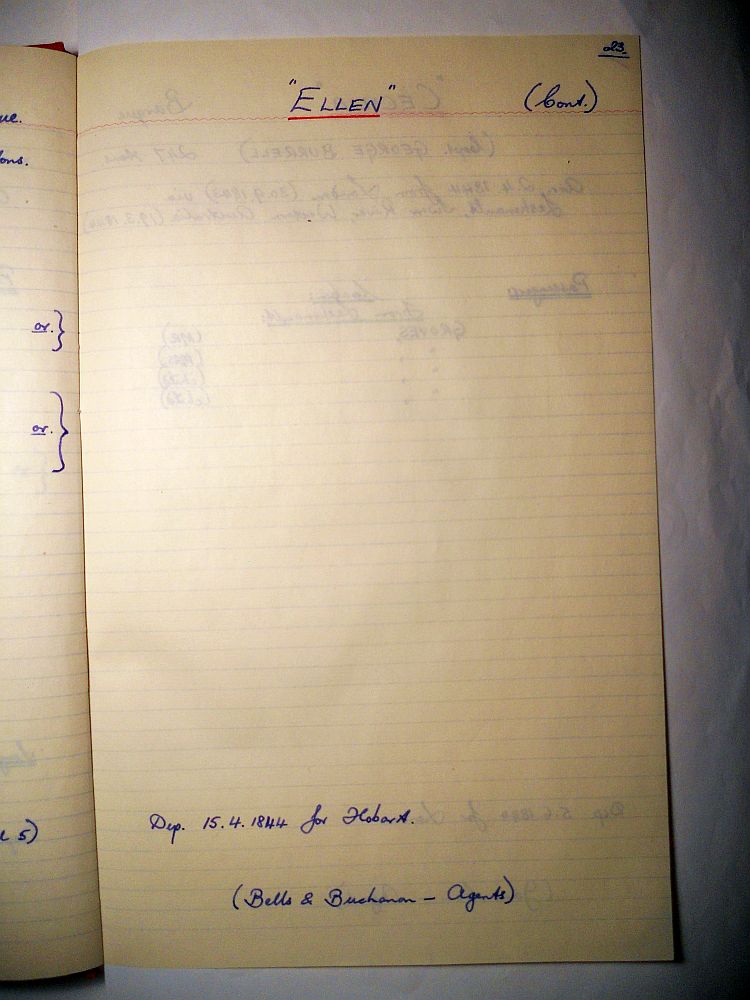 ue.
ons.
or. }
or. }
l 5)
23.
"ELLEN" (Cont.)
Dep. 15.4.1844 for Hobart.
(Bells & Buchanan – Agents)